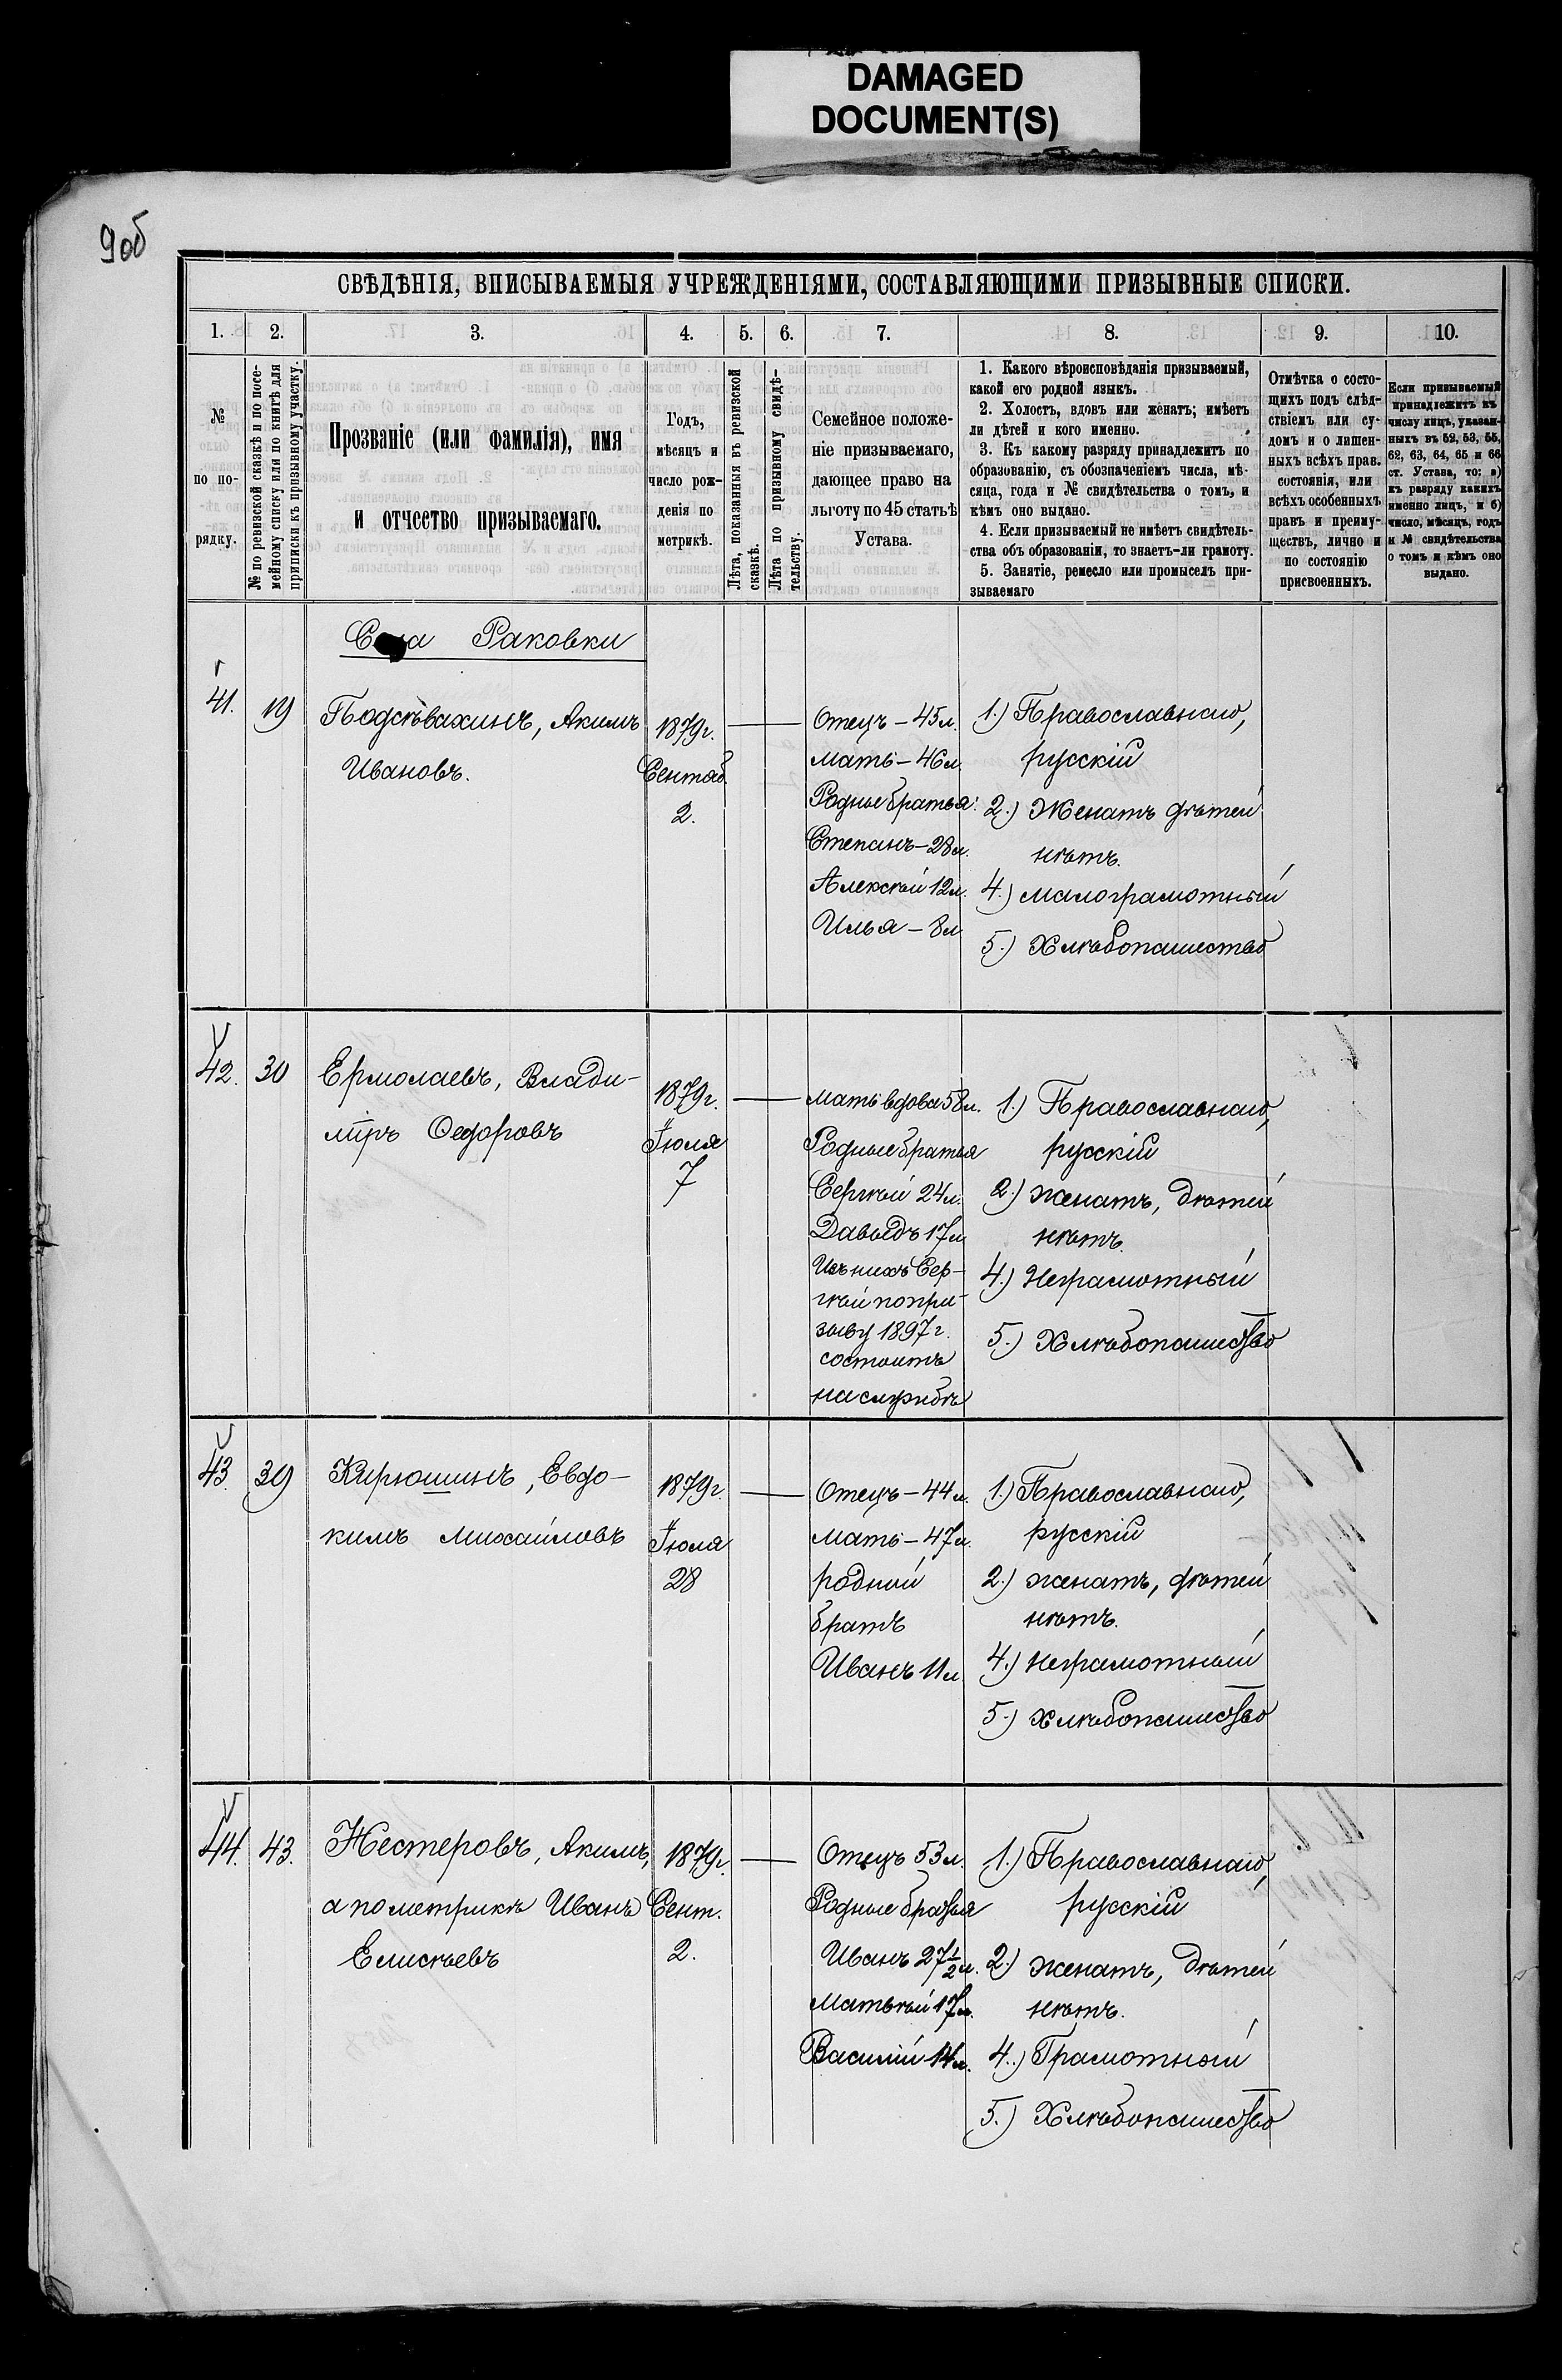 DAMAGED
DOCUMENT(S)
9об
СВѢДѢНІЯ, ВПИСЫВАЕМЫЯ УЧРЕЖДЕНІЯМИ, СОСТАВЛЯЮЩИМИ ПРИЗЫВНЫЕ СПИСКИ.
1. 2. 3. 4. 5. 6. 7. 8. 9. 10.
№
по по-
рядку.
№ по ревизской сказкѣ и по посе-
мейному списку или по книгѣ для
приписки къ призывному участку.
Прозваніе (или фамилія), имя
и отчество призываемаго.
Годъ,
мѣсяцъ и
число рож-
денія по
метрикѣ.
Лѣта, показанныя въ ревизской
сказкѣ.
Лѣта по призывному свидѣ-
тельству.
Семейное положе-
ніе призываемаго,
дающее право на
льготу по 45 статьѣ
Устава.
1. Какого вѣроисповѣданія призываемый,
какой его родной языкъ.
2. Холостъ, вдовъ или женатъ; имѣетъ
ли дѣтей и кого именно.
3. Къ какому разряду принадлежитъ по
образованію, съ обозначеніемъ числа, мѣ-
сяца, года и № свидѣтельства о томъ, и
кѣмъ оно выдано.
4. Если призываемый не имѣетъ свидѣтель-
ства объ образованіи, то знаетъ-ли грамоту.
5. Занятіе, ремесло или промыселъ при-
зываемаго
Отмѣтка о состо-
щихъ подъ слѣд-
ствіемъ или су-
домъ и о лишен-
ныхъ всѣхъ прав.
состоянія, или
всѣхъ особенныхъ
правъ и преиму-
ществъ, лично и
по состоянію
присвоенныхъ.
Если призываемый
принадлежитъ къ
числу лицъ, указан-
ныхъ въ 52, 53, 55,
62, 63, 64, 65 и 66
ст. Устава, то: а)
къ разряду какихъ
именно лицъ, и б)
число, мѣсяцъ, годъ
и № свидѣтельства
о томъ и кѣмъ оно
выдано.
Раковки
41. 19
Подсѣвахинъ, Акимъ
Ивановъ.
1879г.
Сентяб.
2.
Отецъ – 45л.
мать – 46л.
Родные братья:
Степанъ – 28л.
Алексѣй 12л.
Илья – 8л
1.) Православнаго,
русскій
2.) Женатъ дѣтей
нѣтъ.
4.) малограмотный
5.) Хлѣбопашество
42. 30
Ермолаевъ, Влади-
міръ Ѳедоровъ
1879г.
Іюля
7
мать вдова 58л.
Родные братья
Сергѣй 24л.
Давыдъ 17л
Изъ нихъ Сер-
гѣй по при-
зыву 1897г.
состоитъ
на службѣ
1.) Православнаго,
русскій
2.) женатъ, дѣтей
нѣтъ.
4.) Неграмотный
5.) Хлѣбопашество
43. 39
Кирюшинъ, Евдо-
кимъ Михайловъ
1879г.
Іюля
28
Отецъ – 44л.
мать – 47л.
родной
братъ
Иванъ 11л
1.) Православнаго,
русскій
2.) женатъ, дѣтей
нѣтъ.
4.) неграмотный
5.) хлѣбопашество
44. 43.
Нестеровъ, Акимъ,
а по метрикѣ Иванъ
Елисѣевъ
1879г.
Сент.
2.
Отецъ 53л.
Родные братья
Иванъ 27½л.
Матвѣй 17л.
Василій 14л.
1.) Православнаго,
русскій
2.) женатъ, дѣтей
нѣтъ.
4.) Грамотный
5.) Хлѣбопашество